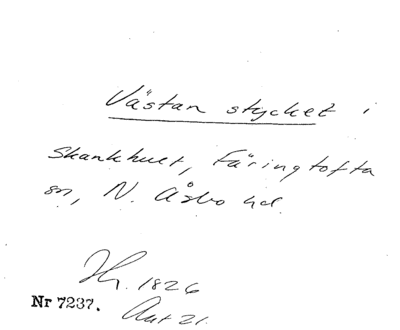 Västan stycket i
Skankhult, Färingtofta
sn, N. Åsbo hd.
1826
Nr 7237.
Akt 21.